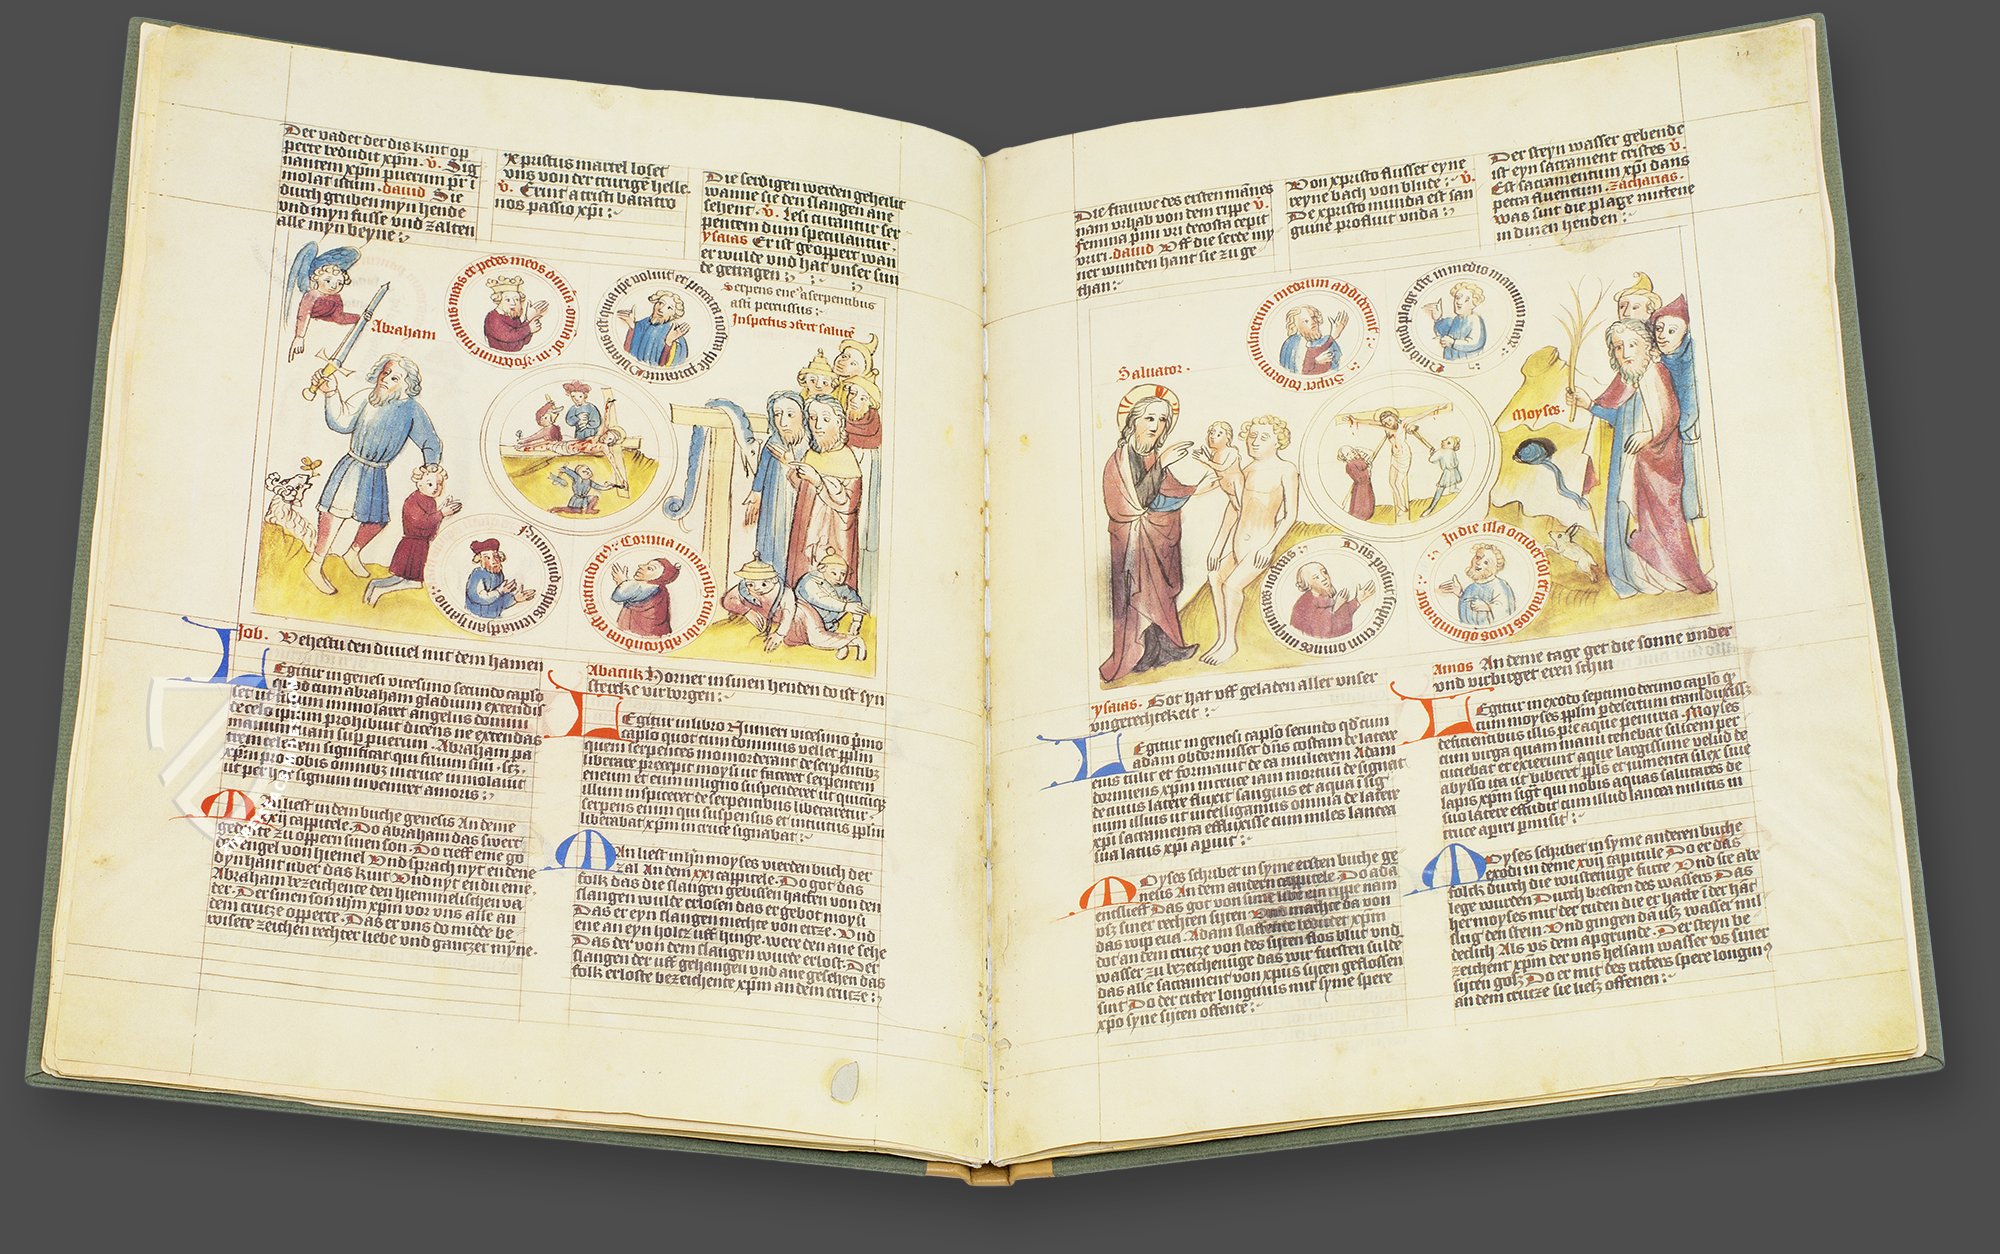 Der vader der dis kint op
perte bedudit xpm. v. Sig
nantem xpm puerum pr i
molat istum. david Sie
durch gruben myn hende
und myn fusse und zalten
alle myn beyne:
Xpristus martel loset
uns von der trurige helle.
v. Eruit a tristi baratro
nos passio xpi:
Die serdigen werden geheilit
wanne sie den slangen ane
sehent. v. Lesi curantur ser
pentem dum speculantur.
ysaias Er ist geoppert wan
er wulde und hat unser sun
de getragen:
Serpens
a serpentibus
percussus:
Inspectus
salute
Abraham
manus meas et pedes meos
Corina in manib; eius ibi abscondita est fortitudo eius:
Job. Vehestu den duvel mit dem hamen
Abacuk Horner in sinen henden do ist syn
stercke virborgen:
Legitur in genesi vicesimo secundo caplo
quod cum abraham gladium extendis
set ut filium immolaret angelus domini
de celo ipsum prohibuit dicens ne extendas
manum tuam sup puerum. Abraham pa
trem celestem significat qui filium suu. scz.
xpm pro nobis omnibz in cruce immolavit
ut per hec signum innueret amoris:
Man liest in dem buche genesis An deme
xxij cappitele. Do abraham das swert
gedechte zu oppern sinen son. Do rieff eine go
engel von hiemel Und sprach nyt endene
dyn hant uber das kint Und nyt en du eme.
Abraham bezeichente den hiemmelischen va
ter. Der sinen son ihm xpm vor uns alle an
dem crutze opperte. Das er uns do midde be
wisete zeichen rechter liebe und gantzer myne.
Legitur in libro Numeri vicesimo pmo
caplo quot cum dominus vellet pplm
quem serpentes momorderant de serpentibz
liberare precepit moysi ut faceret serpentem
eneum et eum in ligno suspenderet ut quicuqz
illum inspiceret de serpentibus liberaretur.
serpens enim qui suspensus et intuitus pplm
liberabat xpm in cruce signabat:
Man liest in hn moyses vierden buch der
zal An dem xxi cappitele. Do got das
folk das die slangen gebissen hatten von den
slangen wulde erlosen das er gebot moysi
Das er eyn slangen mechte von ertze. Und
ene an eyn holtz uff hinge. were den ane sehe
Das der von dem slangen wurde erlost. Der
slangen der uff gehangen und ane gesehen das
folk erloste bezeichente xpm an dem crutze:
Die frauwe des ersten mannes
nam urhab von dem rippe v.
femina pmi viri de costa cepit
vuri. david Uff die serde my
ner wunden hant sie zu ge
than:
Von xpristo flusset eyne
reyne bach von blude: v.
De xpristo munda est san
guine profluit unda:
Der steyn wasser gebende
ist eyn sacrament cristes v.
Est sacramentum xpi dans
petra fluentum. zacharias.
was sint die plage mittene
in duren henden:
Salvator.
Super dolorem vulnerum meorum addiderunt
Quid sunt plage iste in medio manuum tuarum
Moyses.
Dns posuit super eum omnes iniquitates nostras:
In die illa occidet sol et radios suos obumbrabit
ysaias. Got hat uff geladen aller unser
ungerechtekeit:
Amos An deme tage get die sonne under
und virbirget eren schin
Legitur in genesi caplo secundo qd cum
adam obdormisset dns costam de latere
eius tulit et formavit de ea mulierem Adam
dormiens xpm in cruce iam mortuu de signat
de cuius latere fluxit sanguis et aqua i sig
num illius ut intelligamus omnia de latere
xpi sacramenta effluxisse cum miles lancea
sua latus xpi aperuit:
Moyses schribet in syme ersten buche ge
nesis An dem andern cappitele. Do ada
entslieff Das got von sime libe ein rippe nam
usz siner rechten syten Und machte da von
das wip eua. Adam slaffende bedutet xpm
dot an dem crutze von des syten flos blut und
wasser zu bezeichenüge das wir fursten sulde
das alle sacrament von xpus syten geflossen
sint Do der ritter longinus mit syme spere
xpo syne syten offente:
Legitur in exodo septimo decimo caplo q
cum moyses pplm p desertum transduxisset
deficientibus illis pre aque penuria. Moyses
cum virga quam manu tenebat silicem per
cuciebat et exierunt aque largissime velud de
abysso ita ut biberet ppls et iumenta silex sive
lapis xpm sigt qui nobis aquas salutares de
suo latere effudit cum illud lancea militis in
cruce apiri pmisit:
Moyses schribet in syme anderen buche
exodi in deme xvii capitule Do er das
folck durch die wustenuge furte Und sie abe
lege wurden Durch bresten des wassers Das
her moyses mit der ruden die er hatte i der hat
slug den stein. Und gingen da usz wasser mil
derlich Als vs dem apgrunde. Der steyn be
zeichent xpm der uns helsam wasser us siner
syten gosz Do er mit des ritters spere longin
an dem crutze sie liesz offenen: